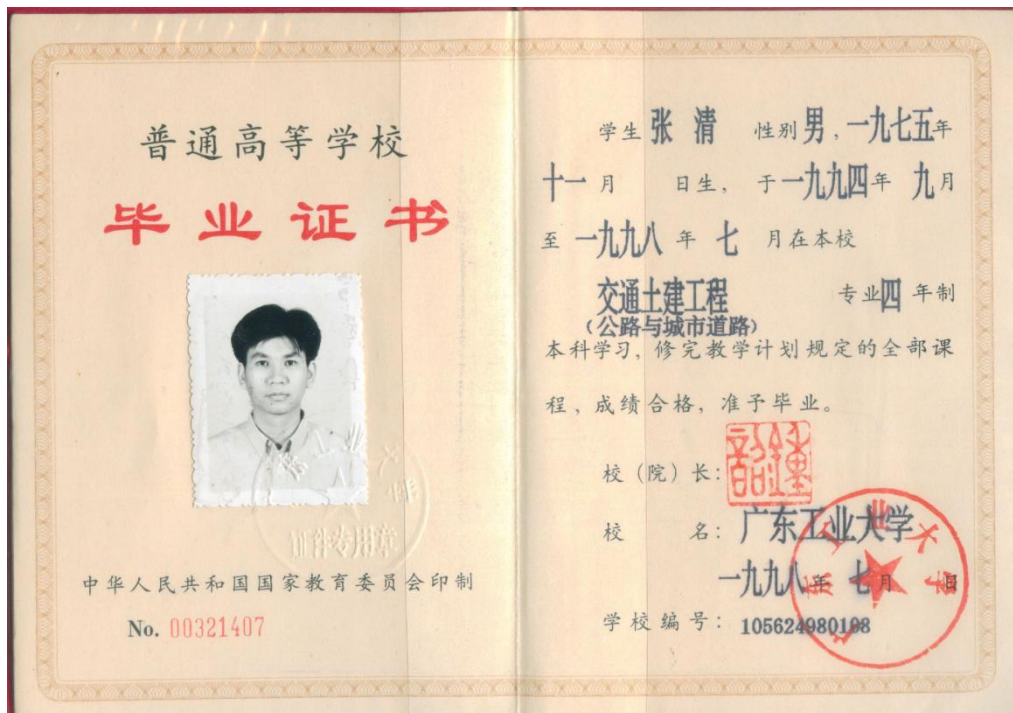 普通高等学校
毕业证书
证件专用章
中华人民共和国国家教育委员会印制
No. 00321407
学生 张清 性别 男，一九七五年
十一月 日生，于一九九四年 九月
至 一九九八 年 七 月在本校
交通土建工程 专业四 年制
（公路与城市道路）
本科学习，修完教学计划规定的全部课
程，成绩合格，准予毕业。
校（院）长：
校 名：广东工业大学
一九九八年 七月 日
学校编号：105624980108